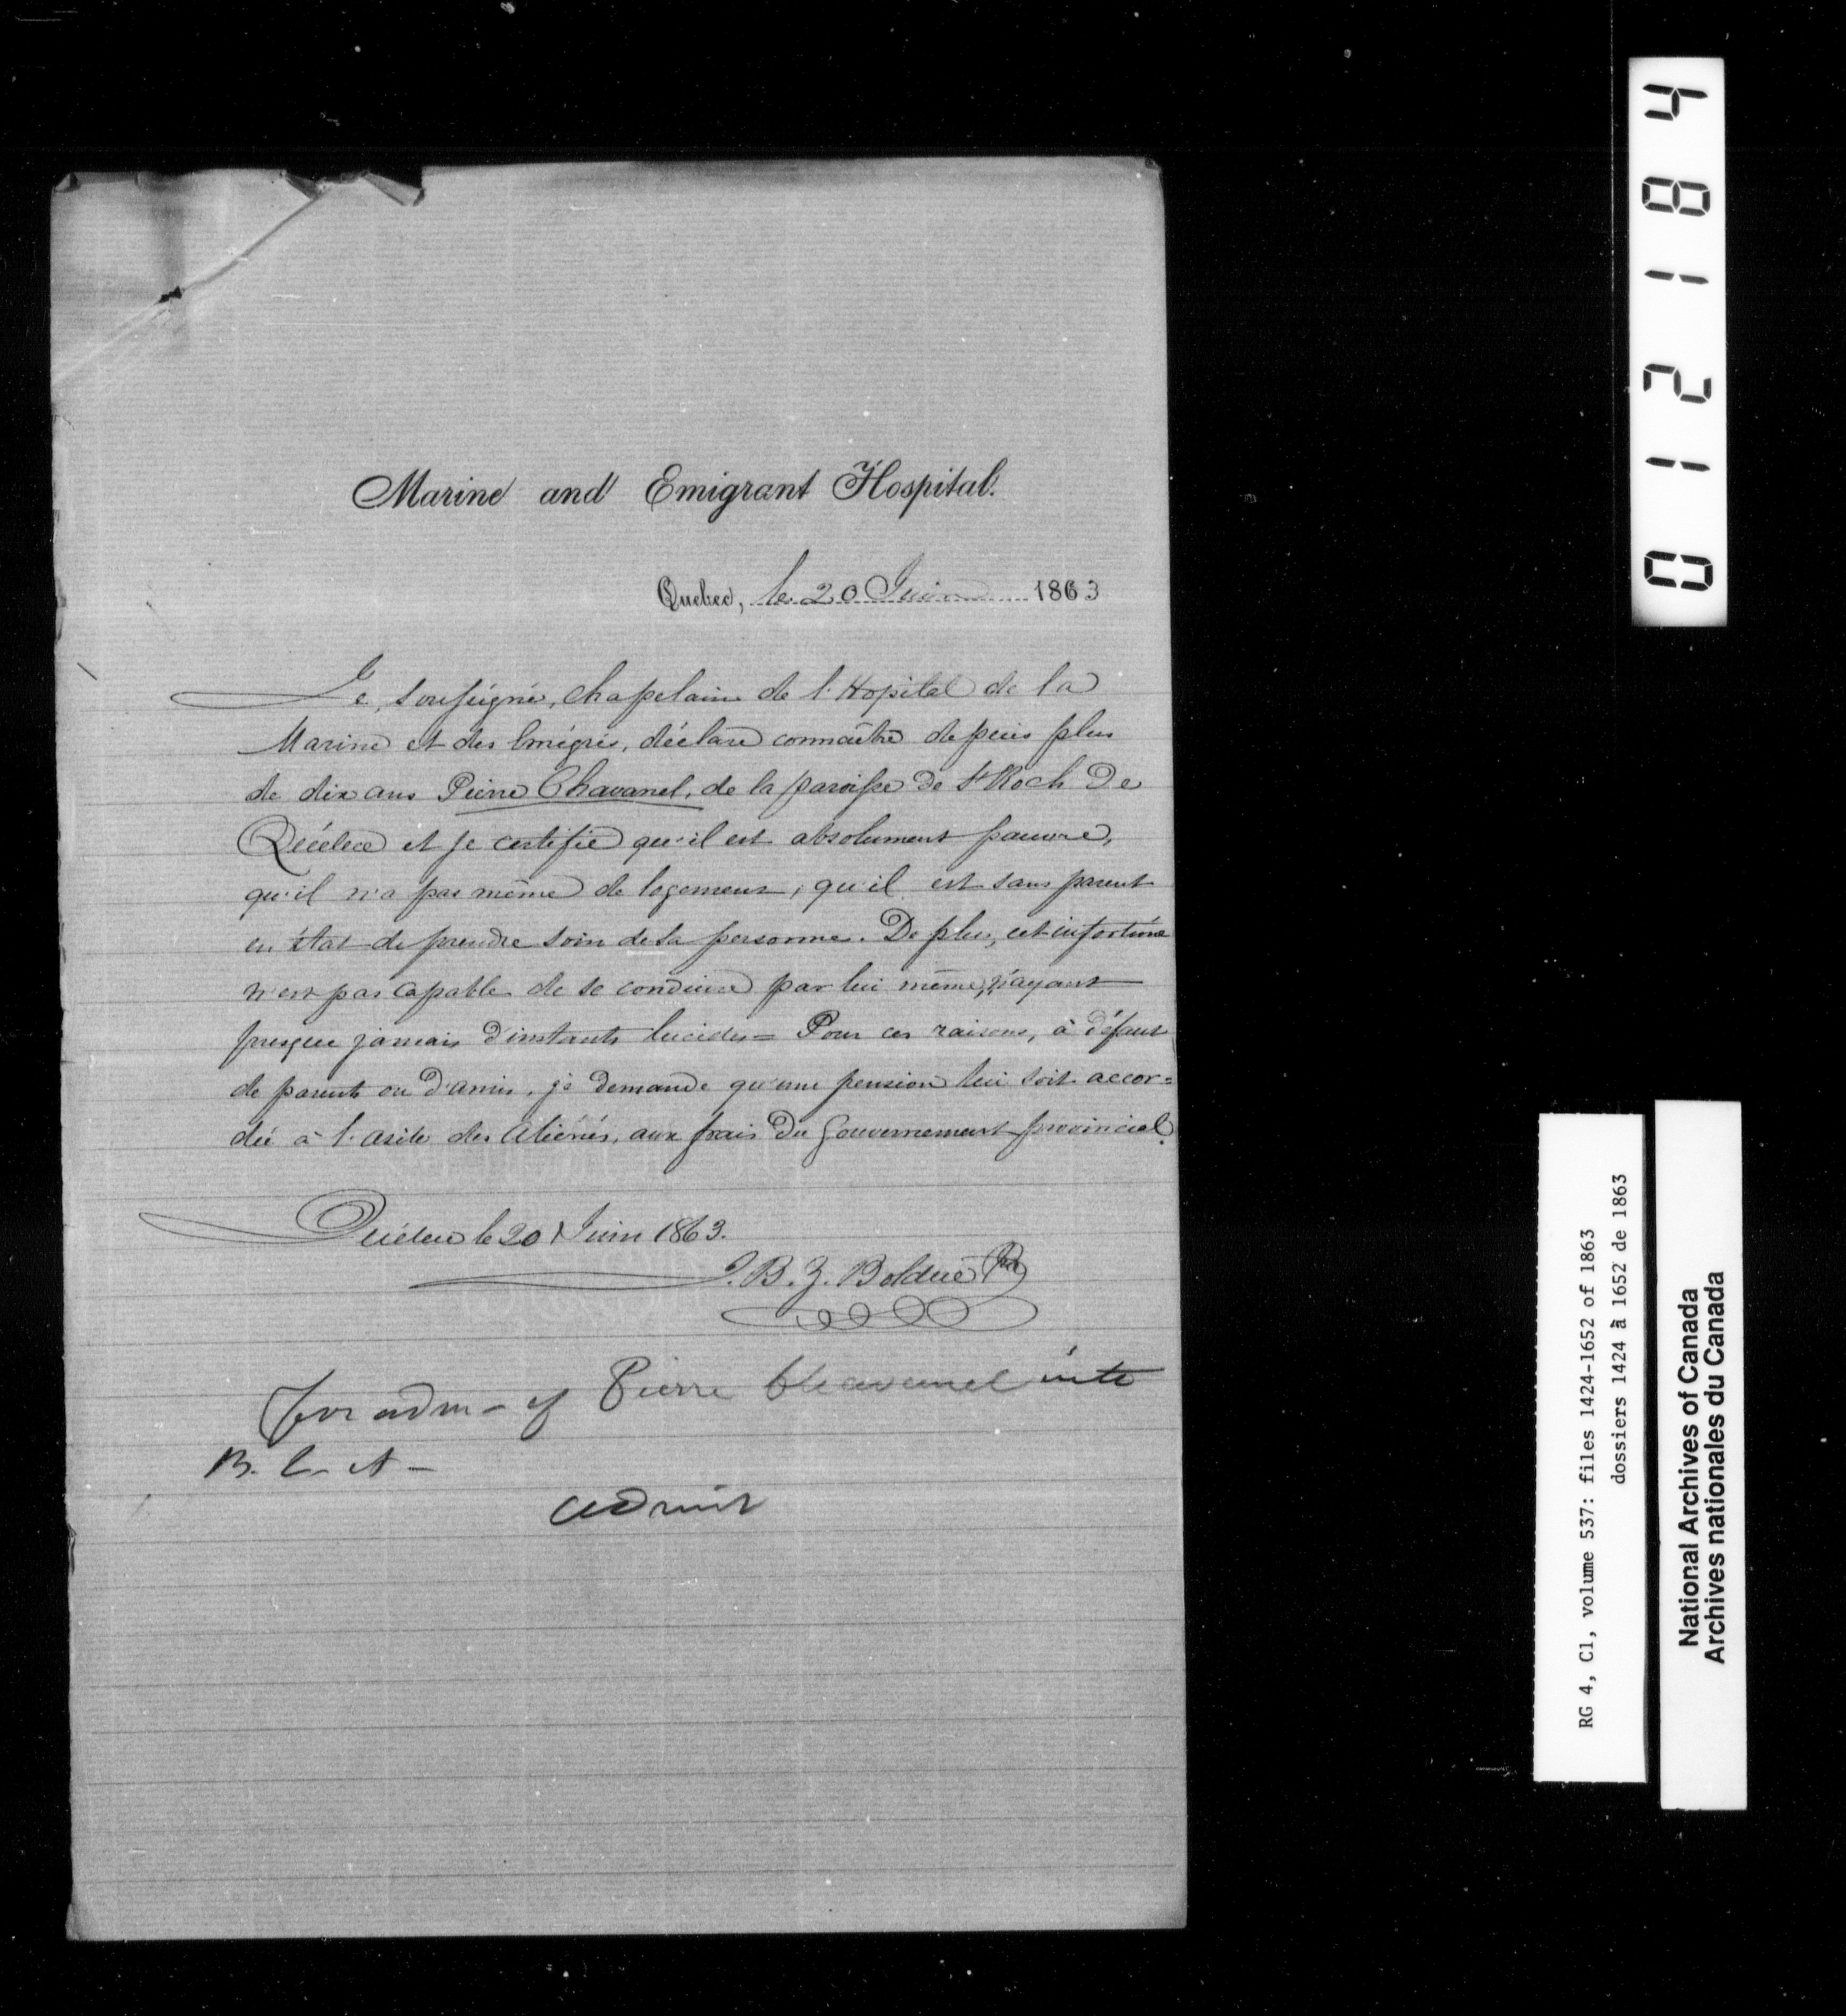 Marine and Emigrant Hospital.
Quebec, le 20 Juin 1863
Je, soussigné, chapelain de l'Hopital de la
Marine et des Emigrés, déclare connaître depuis plus
de dix ans Pierre Chavanel, de la paroisse de St Roch De
Québec et je certifie qu'il est absolument pauvre,
qu'il n'a pas même de logement, qu'il est sans parent
en état de prendre soin de sa personne. De plus, cet infortuné
n'est pas capable de se conduire par lui même, n'ayant
presque jamais d'instants lucides = Pour ces raisons, à défaut
de parents ou d'amis, je demande qu'une pension lui soit accor=
dée à l'asile des Aliénés, aux frais Du Gouvernement provincial.
Québec le 20 Juin 1863.
J. B. Z. Bolduc Ptre
for adm - of Pierre Chavanel into
B. L. A -
admit
0 1 2 1 8 4
RG 4, C1, volume 537: files 1424-1652 of 1863
dossiers 1424 à 1652 de 1863
National Archives of Canada
Archives nationales du Canada